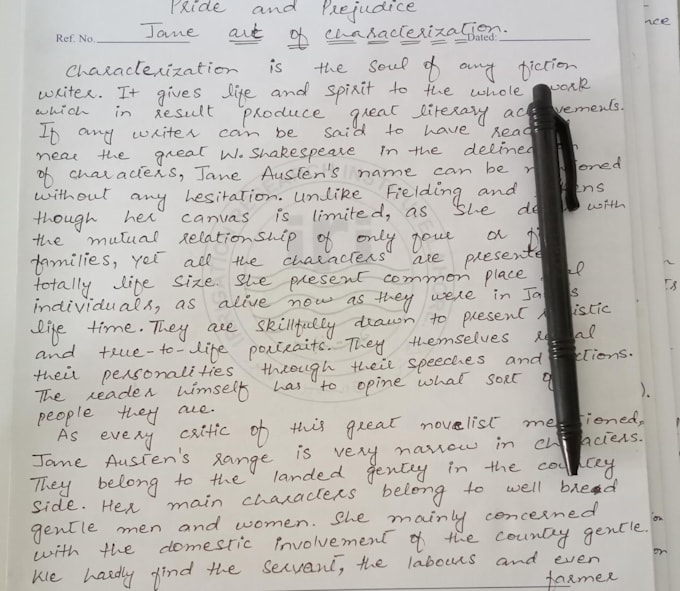 Pride and Prejudice
Ref. No. Jane art of characterization. Dated:
Characterization is the soul of any fiction
writer. It gives life and spirit to the whole work
which in result produce great literary ac vements.
If any writer can be said to have reac
near the great W. Shakespeare in the deline
of characters, Jane Austen's name can be m ioned
without any hesitation. Unlike Fielding and ens
though her canvas is limited, as she de with
the mutual relationship of only four or f
families, yet all the characters are presente
totally life size. She present common place
individuals, as alive now as they were in Ja s
life time. They are skillfully drawn to present istic
and true-to-life portraits. They themselves re al
their personalities through their speeches and ctions.
The reader himself has to opine what sort o
people they are.
As every critic of this great novelist me tioned,
Jane Austen's range is very narrow in ch acters.
They belong to the landed gentry in the cou try
side. Her main characters belong to well bread
gentle men and women. She mainly concerned
with the domestic involvement of the country gentle.
We hardly find the servant, the labours and even
farmer